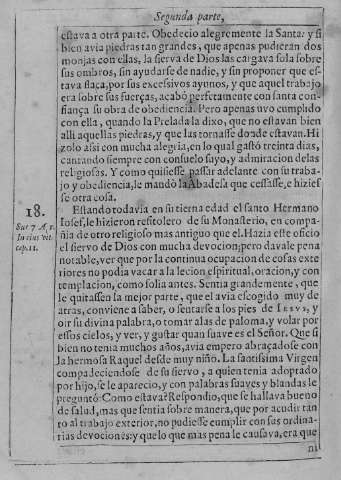 Segunda parte,
estava a otra parte. Obedecio alegremente la Santa: y si
bien avia piedras tan grandes, que apenas pudieran dos
monjas con ellas, la sierva de Dios las cargava sola sobre
sus ombros, sin ayudarse de nadie, y sin proponer que es-
tava flaca, por sus excessivos ayunos, y que aquel trabajo
era sobre sus fuerças, acabò perfectamente con santa con-
fiança su obra de obediencia. Pero apenas uvo cumplido
con ella, quando la Prelada la dixo, que no estavan bien
alli aquellas piedras, y que las tornasse donde estavan. Hi
zolo assi con mucha alegria, en lo qual gastò treinta dias,
cantando siempre con consuelo suyo, y admiracion de las
religiosas. Y como quisiesse passar adelante con su traba-
jo y obediencia, le mandò la Abadesa que cessasse, e hizies
se otra cosa.
18.
Estando todavia en su tierna edad el santo Hermano
Iosef, le hizieron refitolero de su Monasterio, en compa-
ñia de otro religioso mas antiguo que el. Hazia este oficio
el siervo de Dios con mucha devocion; pero davale pena
notable, ver que por la continua ocupacion de cosas exte
riores no podia vacar a la lecion espiritual, oracion, y con
templacion, como solia antes. Sentia grandemente, que
le quitassen la mejor parte, que el avia escogido muy de
atras, conviene a saber, o sentarse a los pies de IESVS, y
oir su divina palabra, o tomar alas de paloma, y volar por
essos cielos, y ver, y gustar quan suave es el Señor. Que si
bien no tenia muchos años, avia empero abraçadose con
la hermosa Raquel desde muy niño. La santissima Virgen
compadeciendose de su siervo, a quien tenia adoptado
por hijo, se le aparecio, y con palabras suaves y blandas le
preguntò: Como estava? Respondio, que se hallava bueno
de salud, mas que sentia sobre manera, que por acudir tan
to al trabajo exterior, no pudiesse cumplir con sus ordina-
rias devociones: y que lo que mas pena le causava, era que
ni